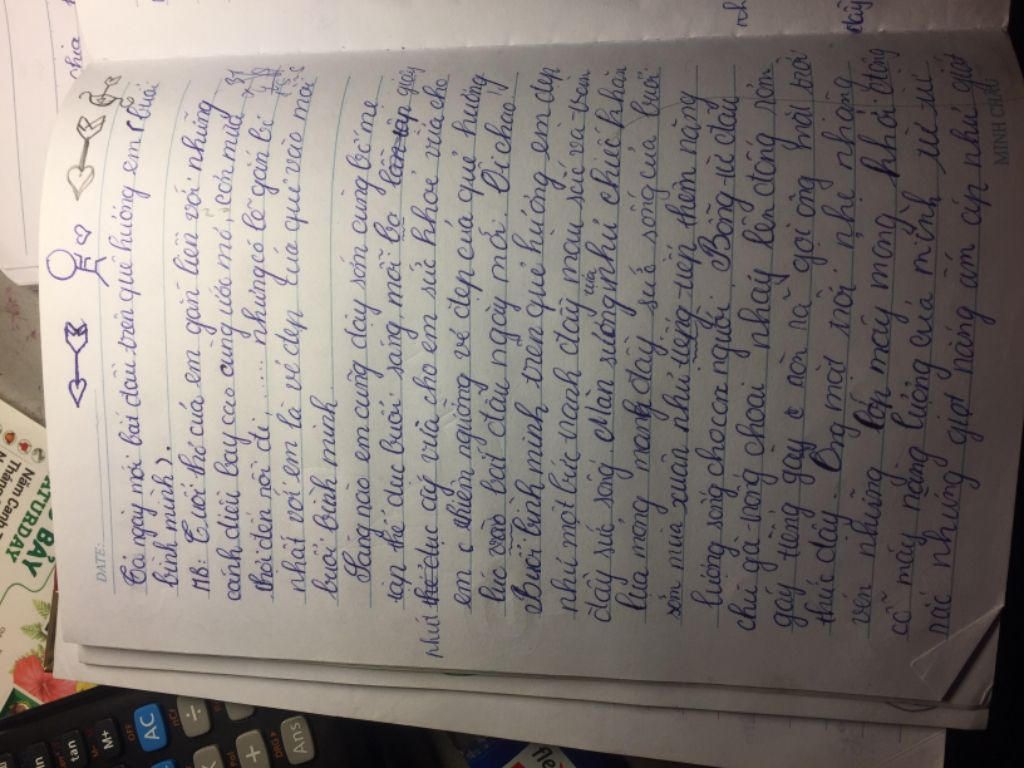 DATE:
Tả ngày mới bắt đầu trên quê hương em (buổi
bình minh).
MB: Tuổi thơ của em gắn liền với những
cánh diều bay cao cùng ước mơ, cơn mưa
thơ đến rồi đi, .... nhưng có lẽ gắn bó
nhất với em là vẻ đẹp của quê vào mỗi
buổi bình minh.
Hằng nào em cũng dậy sớm cùng bố mẹ
tập thể dục buổi sáng mỗi
như thế dục ấy vừa cho em sức khoẻ vừa cho
em chiêm ngưỡng vẻ đẹp của quê hương
lúc vào bắt đầu ngày mới. Ôi chao
Buổi bình minh trên quê hương em đẹp
như một bức tranh đầy màu sắc và tràn
đầy sức sống. Màn sương như chiếc khăn
lụa mỏng mang đầy sức sống của buổi
sớm mùa xuân như tiếp thêm năng
lượng sống cho con người. Bỗng từ đâu
chú gà trống choai nhảy lên đống rơm
gáy tiếng gáy ò ó o gọi ông mặt trời
thức dậy. Ông mặt trời nhẹ nhàng
vén những lớp mây mỏng khỏi bỗng
cỗ máy năng lượng của mình, từ từ
rắc những giọt nắng ấm áp như giọt
MINH CHÂU
BẢY
SATURDAY
Năm Canh
Tháng
AC
tan
M+
Ans
÷
+